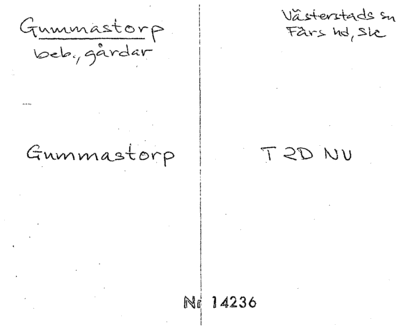 Gummastorp
beb., gårdar
Västerstads sn
Färs hd, Ske
Gummastorp
T 2D NV
Nr 14236